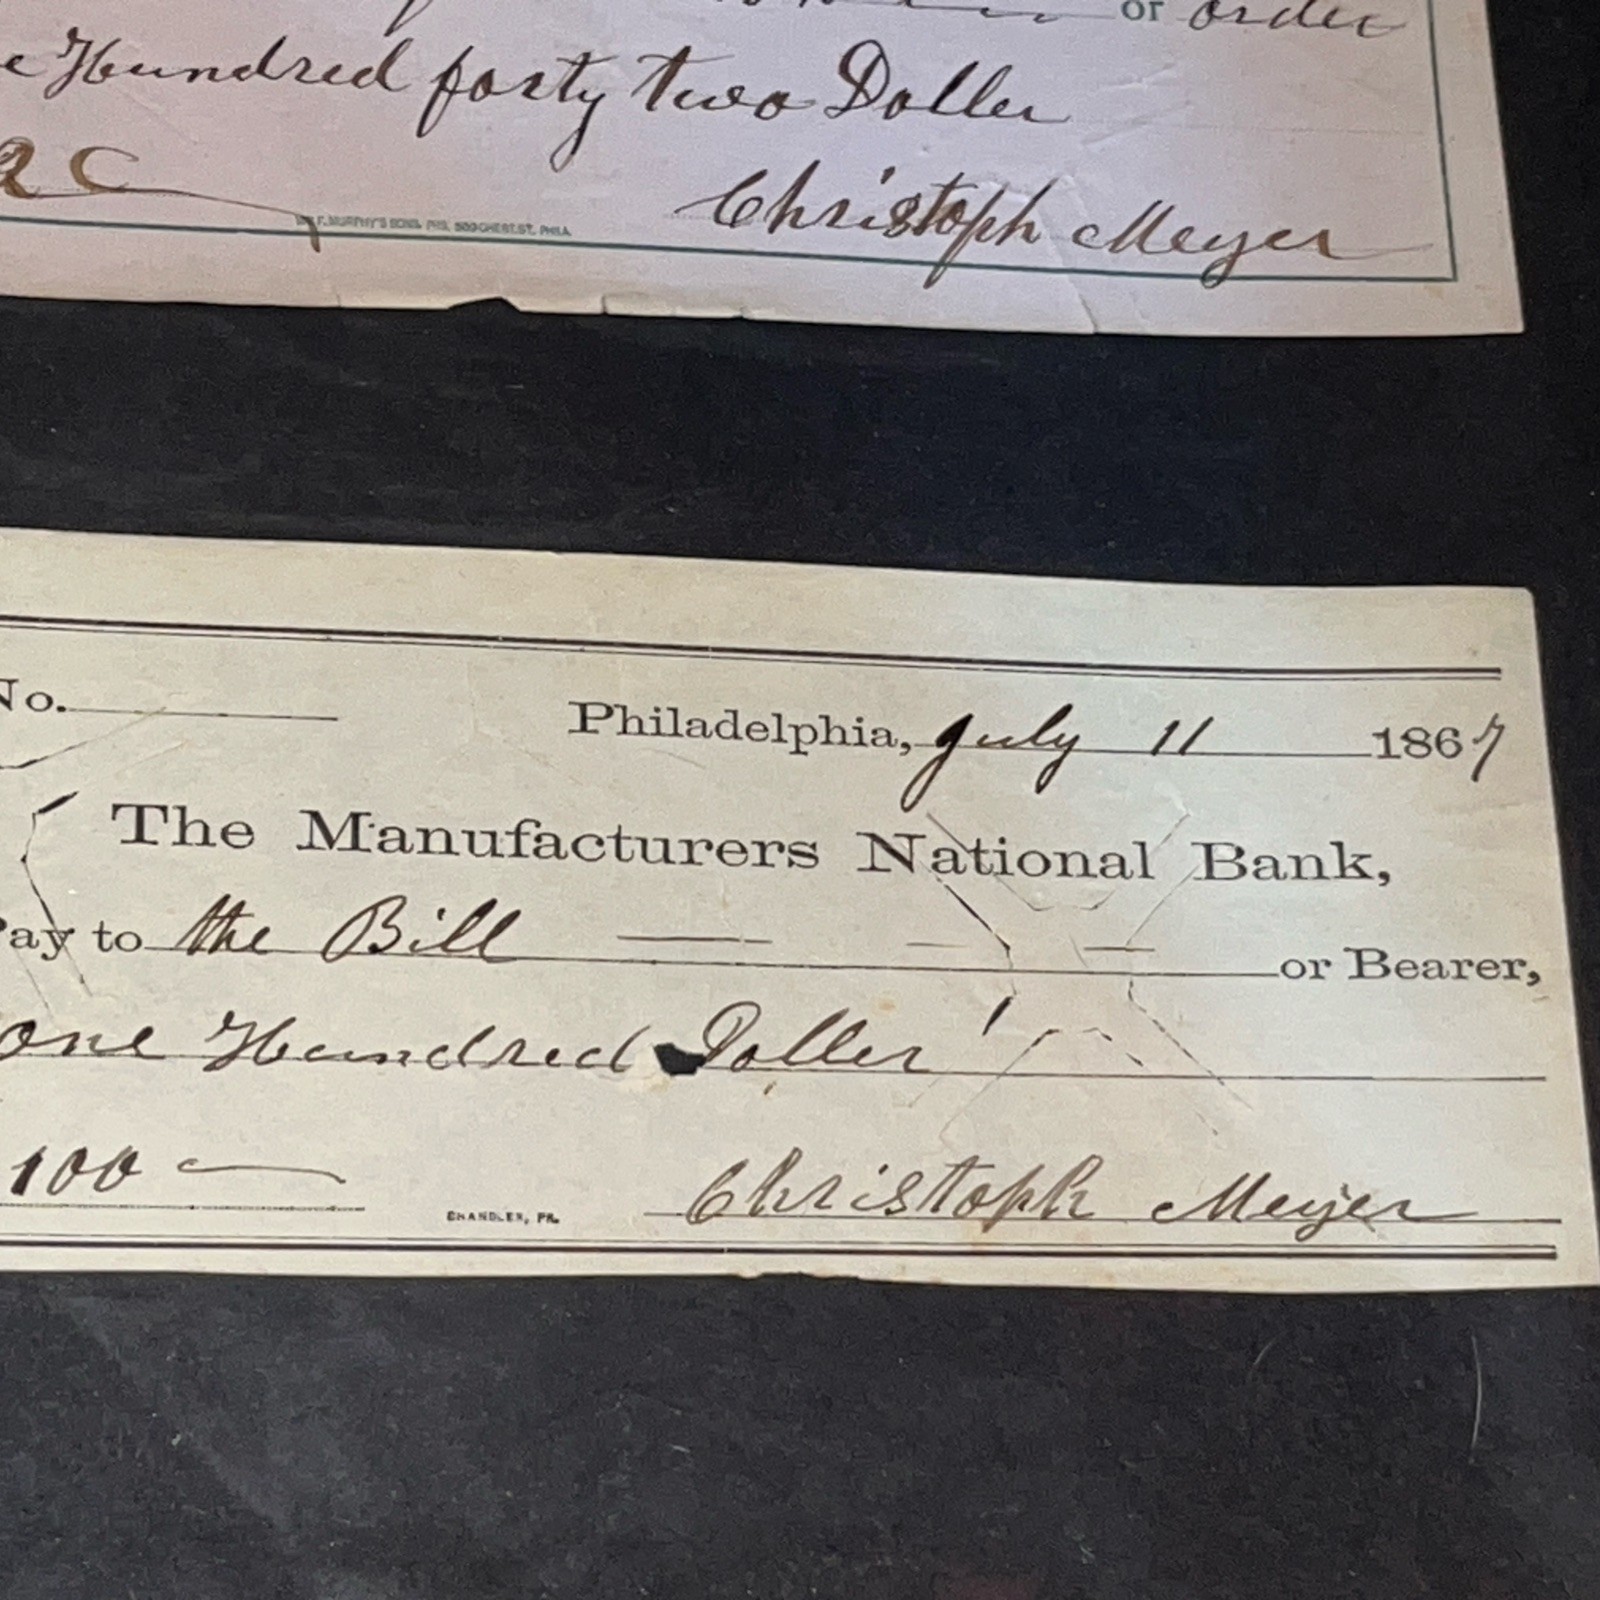 or order
Hundred forty two Doller
2 C
F. MURPHY'S SONS, PHIL. 509 CHEST. ST. PHILA.
Christoph Meyer
No.
Philadelphia, July 11 1867
The Manufacturers National Bank,
Pay to the Bill or Bearer,
one Hundred Doller
100
CHANDLER, PR.
Christoph Meyer